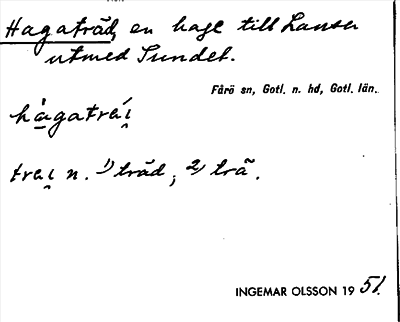 Hagaträd, en hage till Lansa
utmed Sundet.
Fårö sn, Gotl. n. hd, Gotl. län.
hàgatrai̯
trai̯ n. 1) träd; 2) trä.
INGEMAR OLSSON 1951.